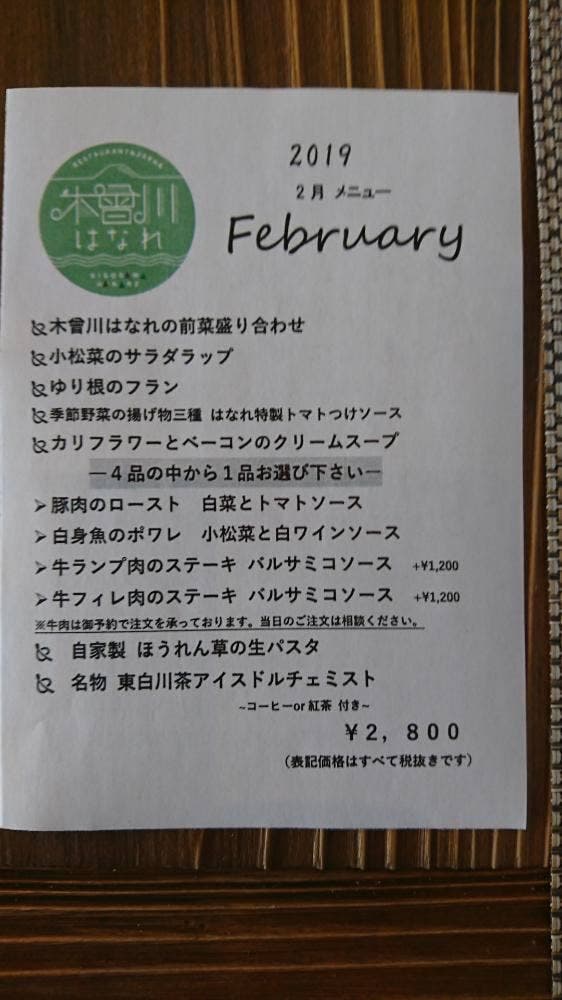 RESTAURANT&ZAKKA
木曽川
はなれ
KISOGAWA
HANARE
2019
2月 メニュー
February
木曾川はなれの前菜盛り合わせ
小松菜のサラダラップ
ゆり根のフラン
季節野菜の揚げ物三種 はなれ特製トマトつけソース
カリフラワーとベーコンのクリームスープ
―４品の中から１品お選び下さい―
➢豚肉のロースト　白菜とトマトソース
➢白身魚のポワレ　小松菜と白ワインソース
➢牛ランプ肉のステーキ バルサミコソース +¥1,200
➢牛フィレ肉のステーキ バルサミコソース +¥1,200
※牛肉は御予約で注文を承っております。当日のご注文は相談ください。
自家製 ほうれん草の生パスタ
名物 東白川茶アイスドルチェミスト
~コーヒーor 紅茶 付き~
￥２，８００
（表記価格はすべて税抜きです）